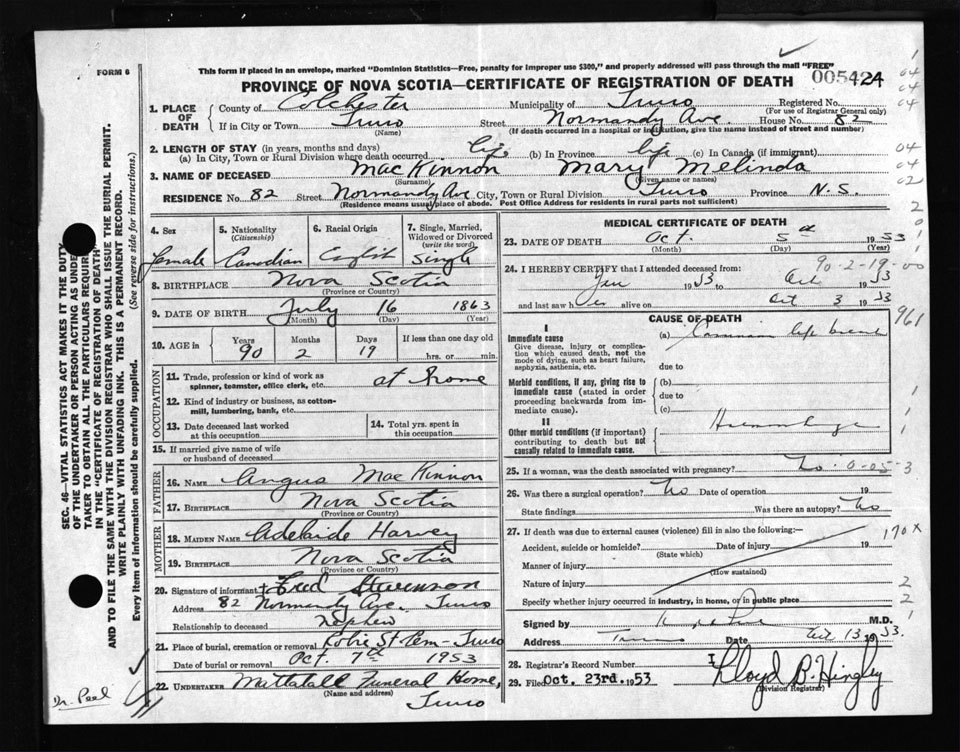 This form if placed in an envelope, marked "Dominion Statistics—Free, penalty for improper use $300," and properly addressed will pass through the mail "FREE"
FORM 6
005424
PROVINCE OF NOVA SCOTIA—CERTIFICATE OF REGISTRATION OF DEATH
1. PLACE OF DEATH
County of Colchester Municipality of Truro Registered No.
(For use of Registrar General only)
If in City or Town Truro Street Normandy Ave. House No. 82
(Name) (If death occurred in a hospital or institution, give the name instead of street and number)
2. LENGTH OF STAY (in years, months and days)
(a) In City, Town or Rural Division where death occurred life (b) In Province life (c) In Canada (if immigrant)
3. NAME OF DECEASED MacKinnon Mary Melinda
(Surname) (Given name or names)
RESIDENCE No. 82 Street Normandy Ave City, Town or Rural Division Truro Province N.S.
(Residence means usual place of abode. Post Office Address for residents in rural parts not sufficient)
4. Sex 5. Nationality (Citizenship) 6. Racial Origin 7. Single, Married, Widowed or Divorced (write the word)
Female Canadian English Single
8. BIRTHPLACE Nova Scotia
(Province or Country)
9. DATE OF BIRTH July 16 1863
(Month) (Day) (Year)
10. AGE in Years Months Days If less than one day old
90 2 19 hrs. or min.
OCCUPATION
11. Trade, profession or kind of work as spinner, teamster, office clerk, etc. at home
12. Kind of industry or business, as cotton-mill, lumbering, bank, etc.
13. Date deceased last worked at this occupation
14. Total yrs. spent in this occupation
15. If married give name of wife or husband of deceased
FATHER
16. NAME Angus MacKinnon
17. BIRTHPLACE Nova Scotia
(Province or Country)
MOTHER
18. MAIDEN NAME Adelaide Harvey
19. BIRTHPLACE Nova Scotia
(Province or Country)
20. Signature of informant Fred Stevenson
Address 82 Normandy Ave. Truro
Relationship to deceased nephew
21. Place of burial, cremation or removal Robie St Cem - Truro
Date of burial or removal Oct. 7th 1953
22. UNDERTAKER Mattatall Funeral Home,
(Name and address) Truro
MEDICAL CERTIFICATE OF DEATH
23. DATE OF DEATH Oct. 5th 1953
(Month) (Day) (Year)
90-2-19-00
24. I HEREBY CERTIFY that I attended deceased from:
1953 to Oct 1953
and last saw her alive on Oct 3 1953
961
CAUSE OF DEATH
I
Immediate cause
Give disease, injury or complication which caused death, not the mode of dying, such as heart failure, asphyxia, asthenia, etc.
(a) Carcinoma left breast
due to
Morbid conditions, if any, giving rise to immediate cause (stated in order proceeding backwards from immediate cause).
(b)
due to
(c)
II
Other morbid conditions (if important) contributing to death but not causally related to immediate cause.
Hemorrhage
25. If a woman, was the death associated with pregnancy? No
26. Was there a surgical operation? No Date of operation 19
State findings Was there an autopsy? No
27. If death was due to external causes (violence) fill in also the following:—
170X
Accident, suicide or homicide? Date of injury 19
(State which)
Manner of injury
(How sustained)
Nature of injury
Specify whether injury occurred in industry, in home, or in public place
Signed by M.D.
Address Truro Date Oct 13 1953.
28. Registrar's Record Number
29. Filed Oct. 23rd. 1953 Lloyd B. Hingley
(Division Registrar)
SEC. 46—VITAL STATISTICS ACT MAKES IT THE DUTY
OF THE UNDERTAKER OR PERSON ACTING AS UNDER
TAKER TO OBTAIN ALL THE PARTICULARS REQUIR
IN THE "CERTIFICATE OF REGISTRATION OF DEATH
AND TO FILE THE SAME WITH THE DIVISION REGISTRAR WHO SHALL ISSUE THE BURIAL PERMIT.
WRITE PLAINLY WITH UNFADING INK. THIS IS A PERMANENT RECORD.
Every item of information should be carefully supplied. (See reverse side for instructions.)
Dr. Peel